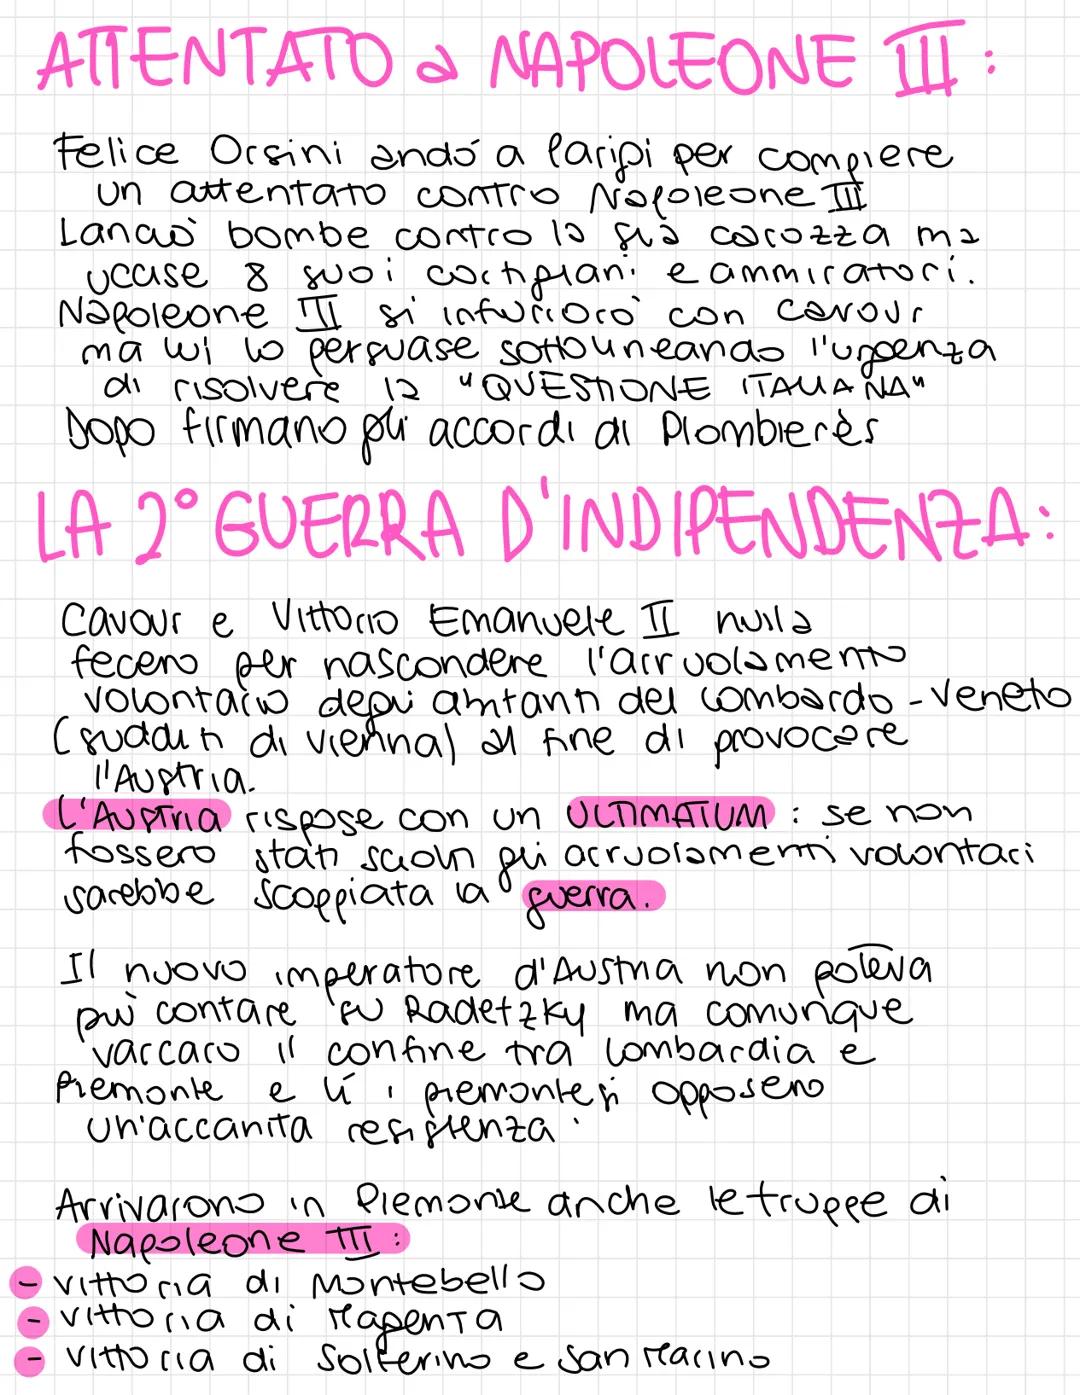 ATTENTATO a NAPOLEONE III:
Felice Orsini andò a Parigi per compiere
un attentato contro Napoleone III
Lanciò bombe contro la sua carozza ma
uccise 8 suoi cochgiani e ammiratori.
Napoleone III si infurioro con Cavour
ma lui lo persuase sottolineando l'urgenza
di risolvere la "QUESTIONE ITALIANA"
Dopo firmano gli accordi di Plombierès
LA 2° GUERRA D'INDIPENDENZA:
Cavour e Vittorio Emanuele II nulla
fecero per nascondere l'arruolamento
volontario degli abitanti del Lombardo-Veneto
(sudditi di vienna) al fine di provocare
l'Austria.
L'Austria rispose con un ULTIMATUM: se non
fossero stati sciolti gli arruolamenti volontari
sarebbe scoppiata la guerra.
Il nuovo imperatore d'Austria non poteva
più contare su Radetzky ma comunque
varcaro il confine tra Lombardia e
Piemonte e lì i piemontesi opposero
un'accanita resistenza.
Arrivarono in Piemonte anche le truppe di
Napoleone III:
- vittoria di Montebello
- vittoria di Magenta
- vittoria di Solferino e San Marino